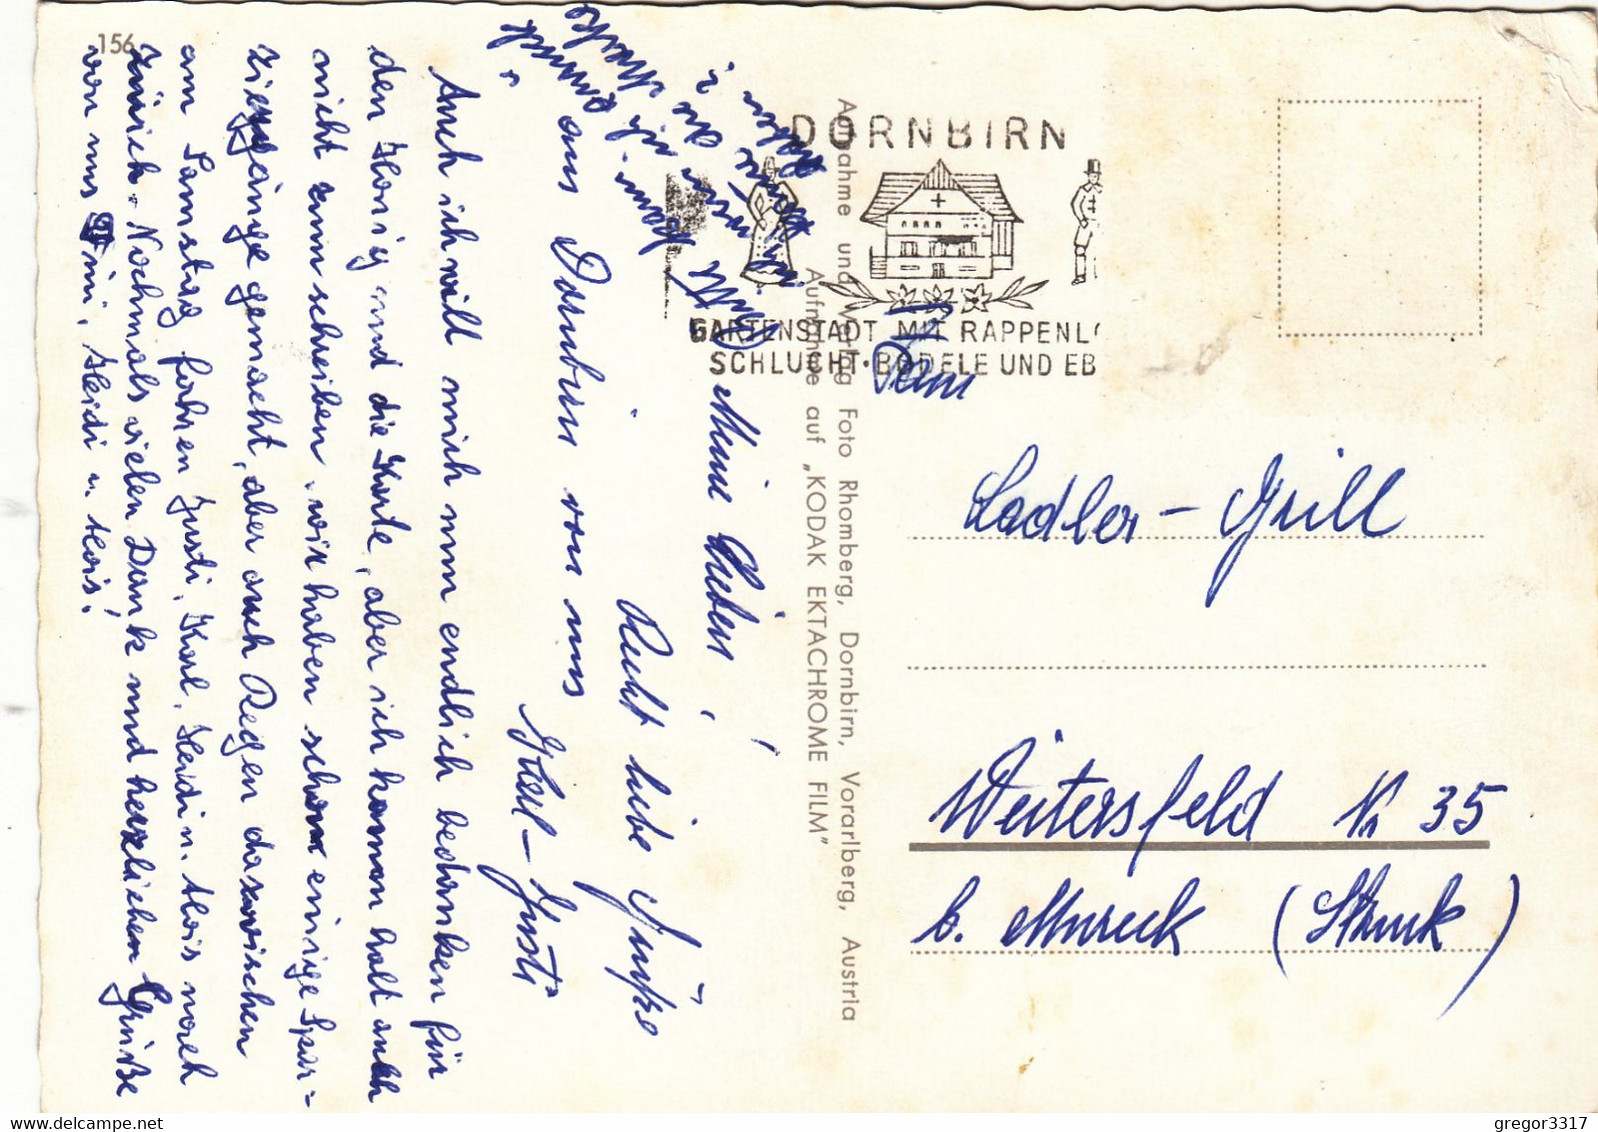 156
Meine Lieben!
Recht liebe Grüße
aus Dornbirn von uns
Karl-Gusti
Auch ich will mich nun endlich bedanken für
den Honig und die Karte, aber ich komm halt auch
nicht zum schreiben, wir haben schon einige Spa-
ziergänge gemacht, aber auch Regen dazwischen
am Samstag fahren Gusti, Karl, Heidi u. Alois nach
Zürich. Nochmals vielen Dank und herzlichen Grüße
von uns Fini, Heidi u. Alois!
Aufnahme und Verlag Foto Rhomberg, Dornbirn, Vorarlberg, Austria
Aufnahme auf „KODAK EKTACHROME FILM"
DORNBIRN
GARTENSTADT MIT RAPPENL
SCHLUCHT·BÖDELE UND EB
Fam
Ladler-Grill
Weitersfeld Nr 35
b. Mureck (Stmk)
gregor3317